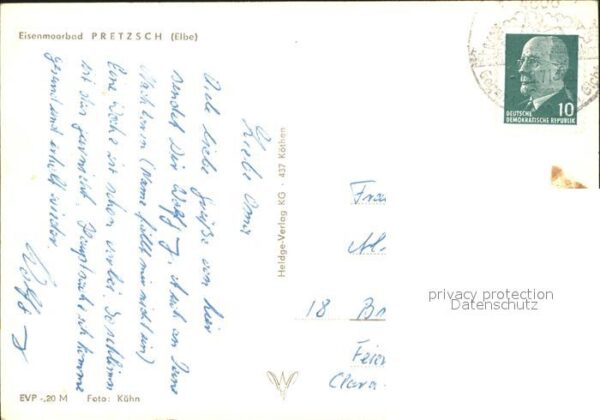 Eisenmoorbad PRETZSCH (Elbe)
Liebe Oma
Viele liebe Grüße von hier
sendet Dir Wolfg. Auch an Deine
Nachbarin (Name fällt mir nicht ein)
Eine Woche ist schon vorbei. So schlimm
ist das gar nicht. Hauptsache ich komme
gesund und erholt wieder.
Wolfg
EVP -,20 M Foto: Kühn
Heldge-Verlag KG · 437 Köthen
DEUTSCHE
DEMOKRATISCHE REPUBLIK
10
Frau
18
Clara-
privacy protection
Datenschutz